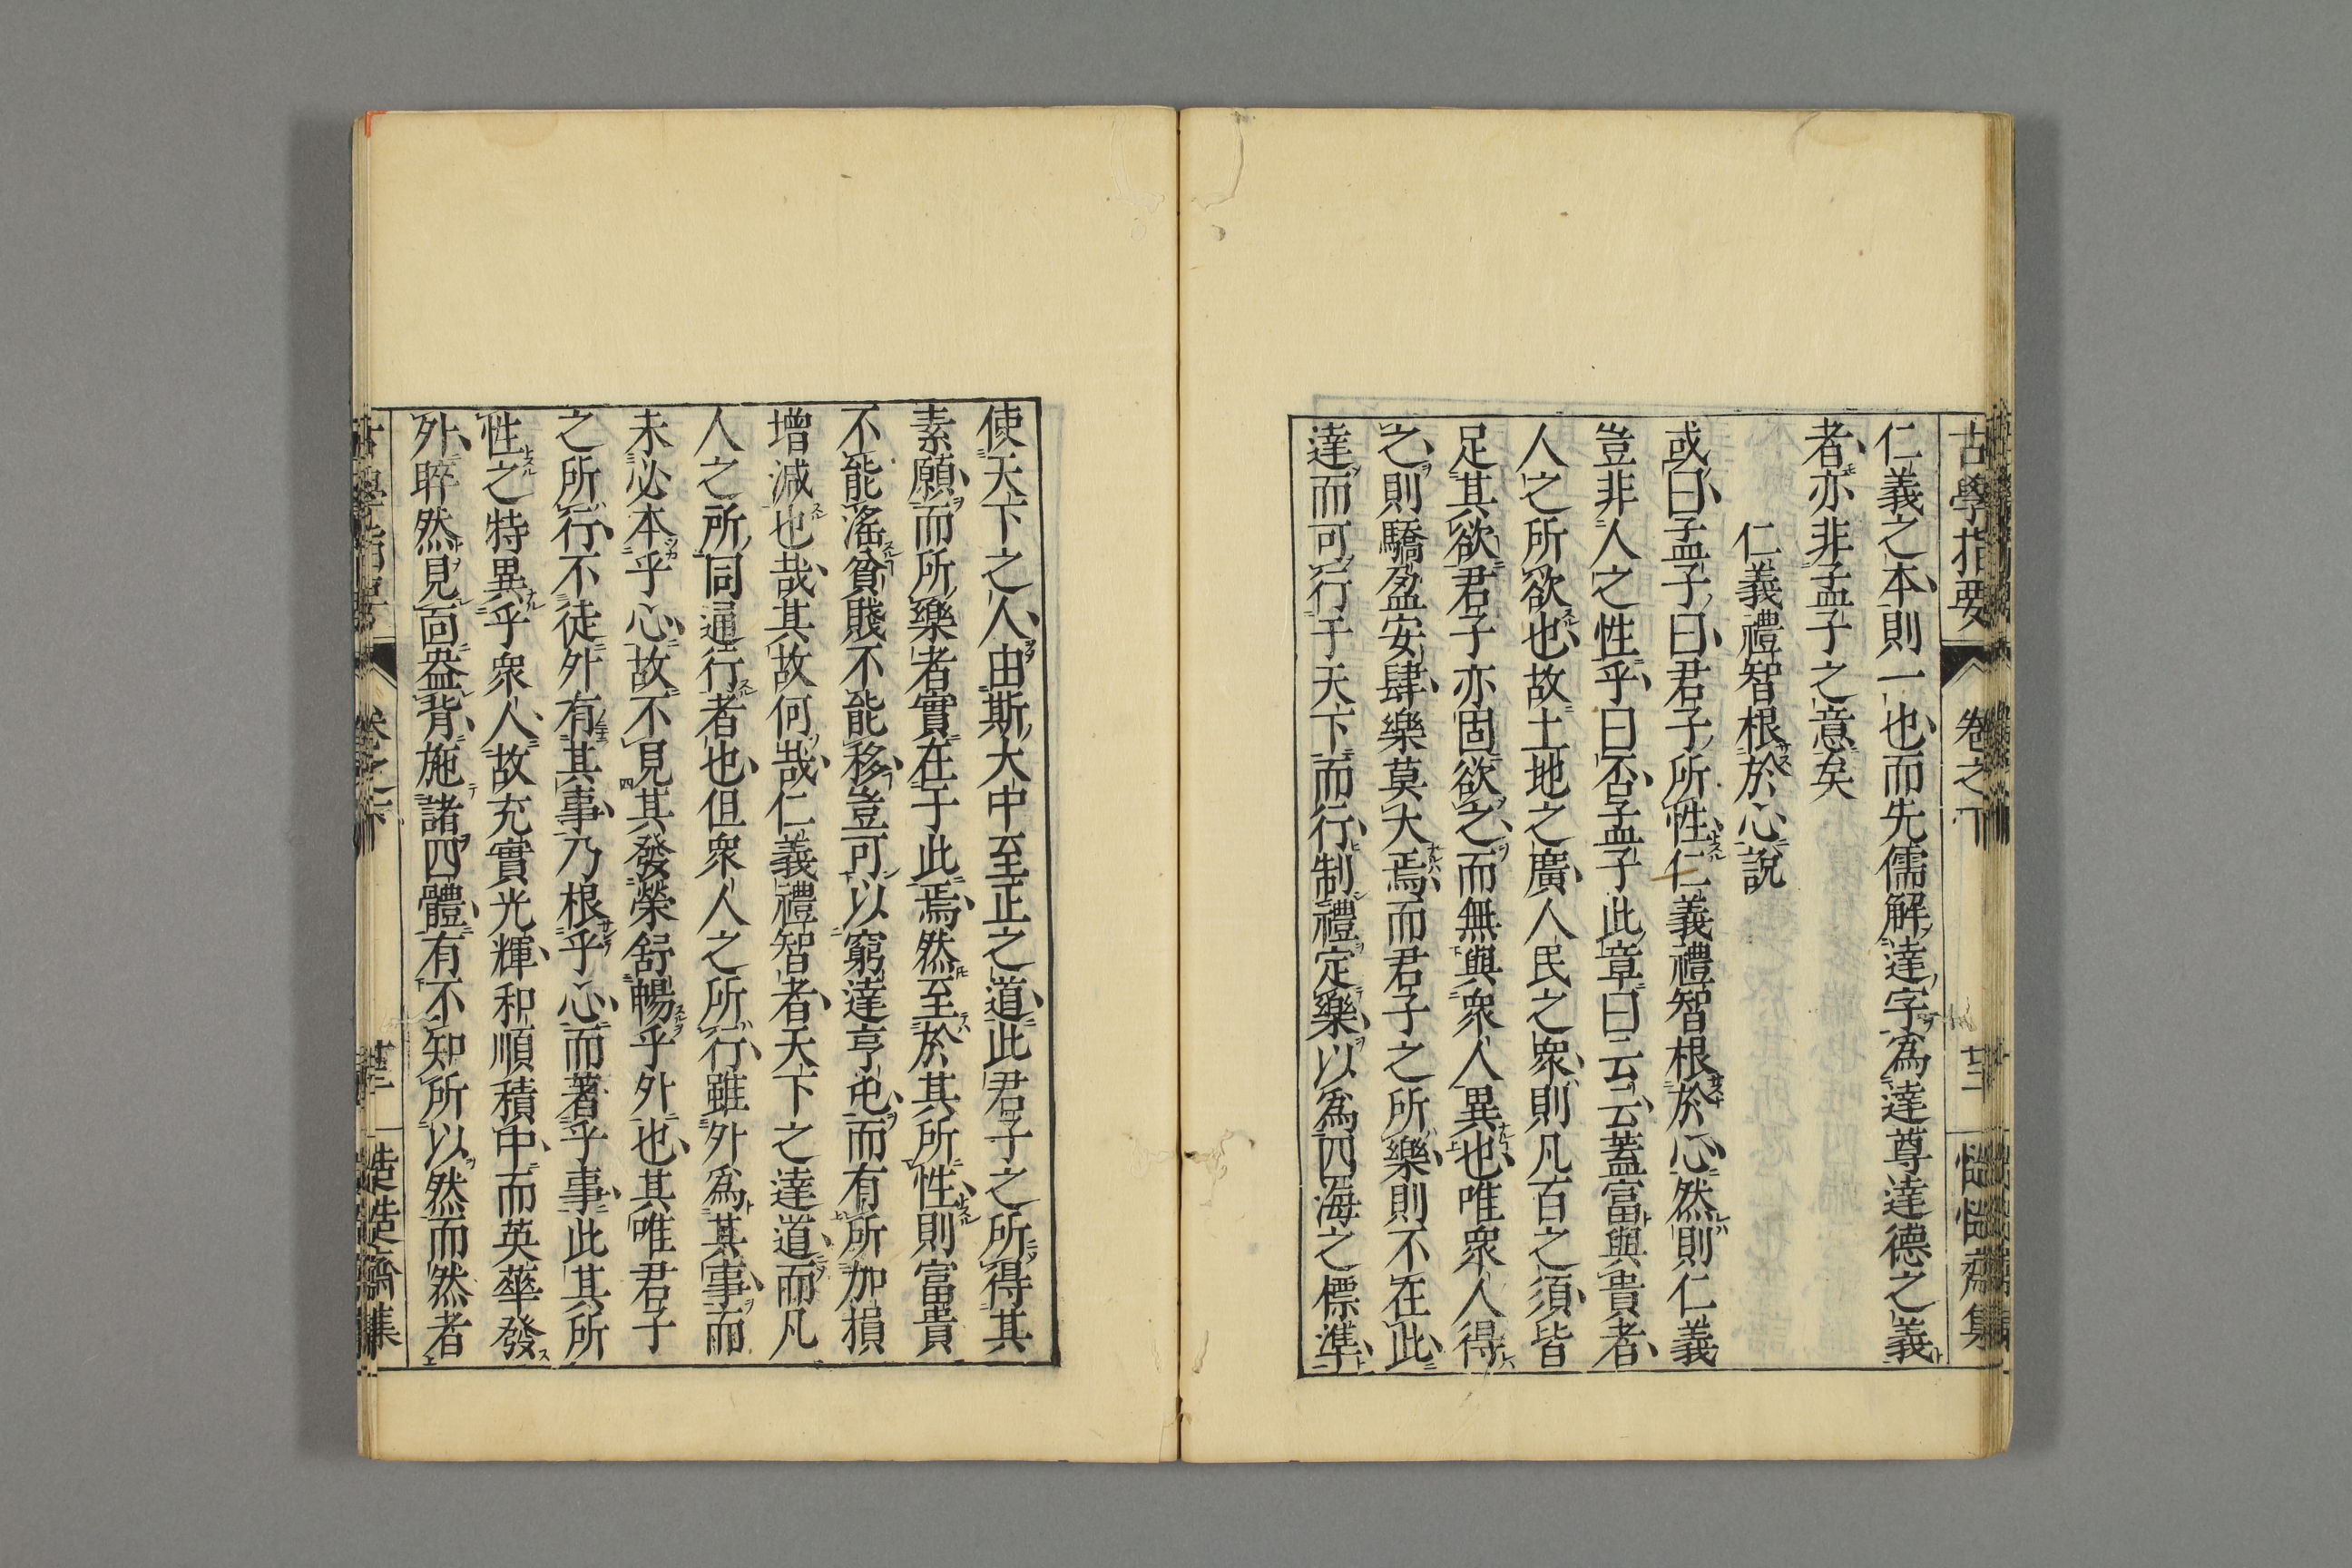 古學指要
卷之下
廿二
慥慥齋集
仁義之本則一也而先儒解達字為達尊達德之義
者亦非孟子之意矣
仁義禮智根於心説
或曰孟子曰君子所性仁義禮智根於心然則仁義
豈非人之性乎曰否孟子此章曰云云蓋富與貴者
人之所欲也故土地之廣人民之衆則凡百之須皆
足其欲君子亦固欲之而無與衆人異也唯衆人得
之則驕盈安肆樂莫大焉而君子之所樂則不在此
達而可行于天下而行制禮定樂以為四海之標準
使天下之人由斯大中至正之道此君子之所得其
素願而所樂者實在于此焉然至於其所性則富貴
不能滛貧賤不能移豈可以窮達亨屯而有所加損
增減也哉其故何哉仁義禮智者天下之達道而凡
人之所同通行者也但衆人之所行雖外為其事而
未必本乎心故不見其發榮舒暢乎外也其唯君子
之所行不徒外有其事乃根乎心而著乎事此其所
性之特異乎衆人故充實光輝和順積中而英華發
外睟然見面盎背施諸四體有不知所以然而然者